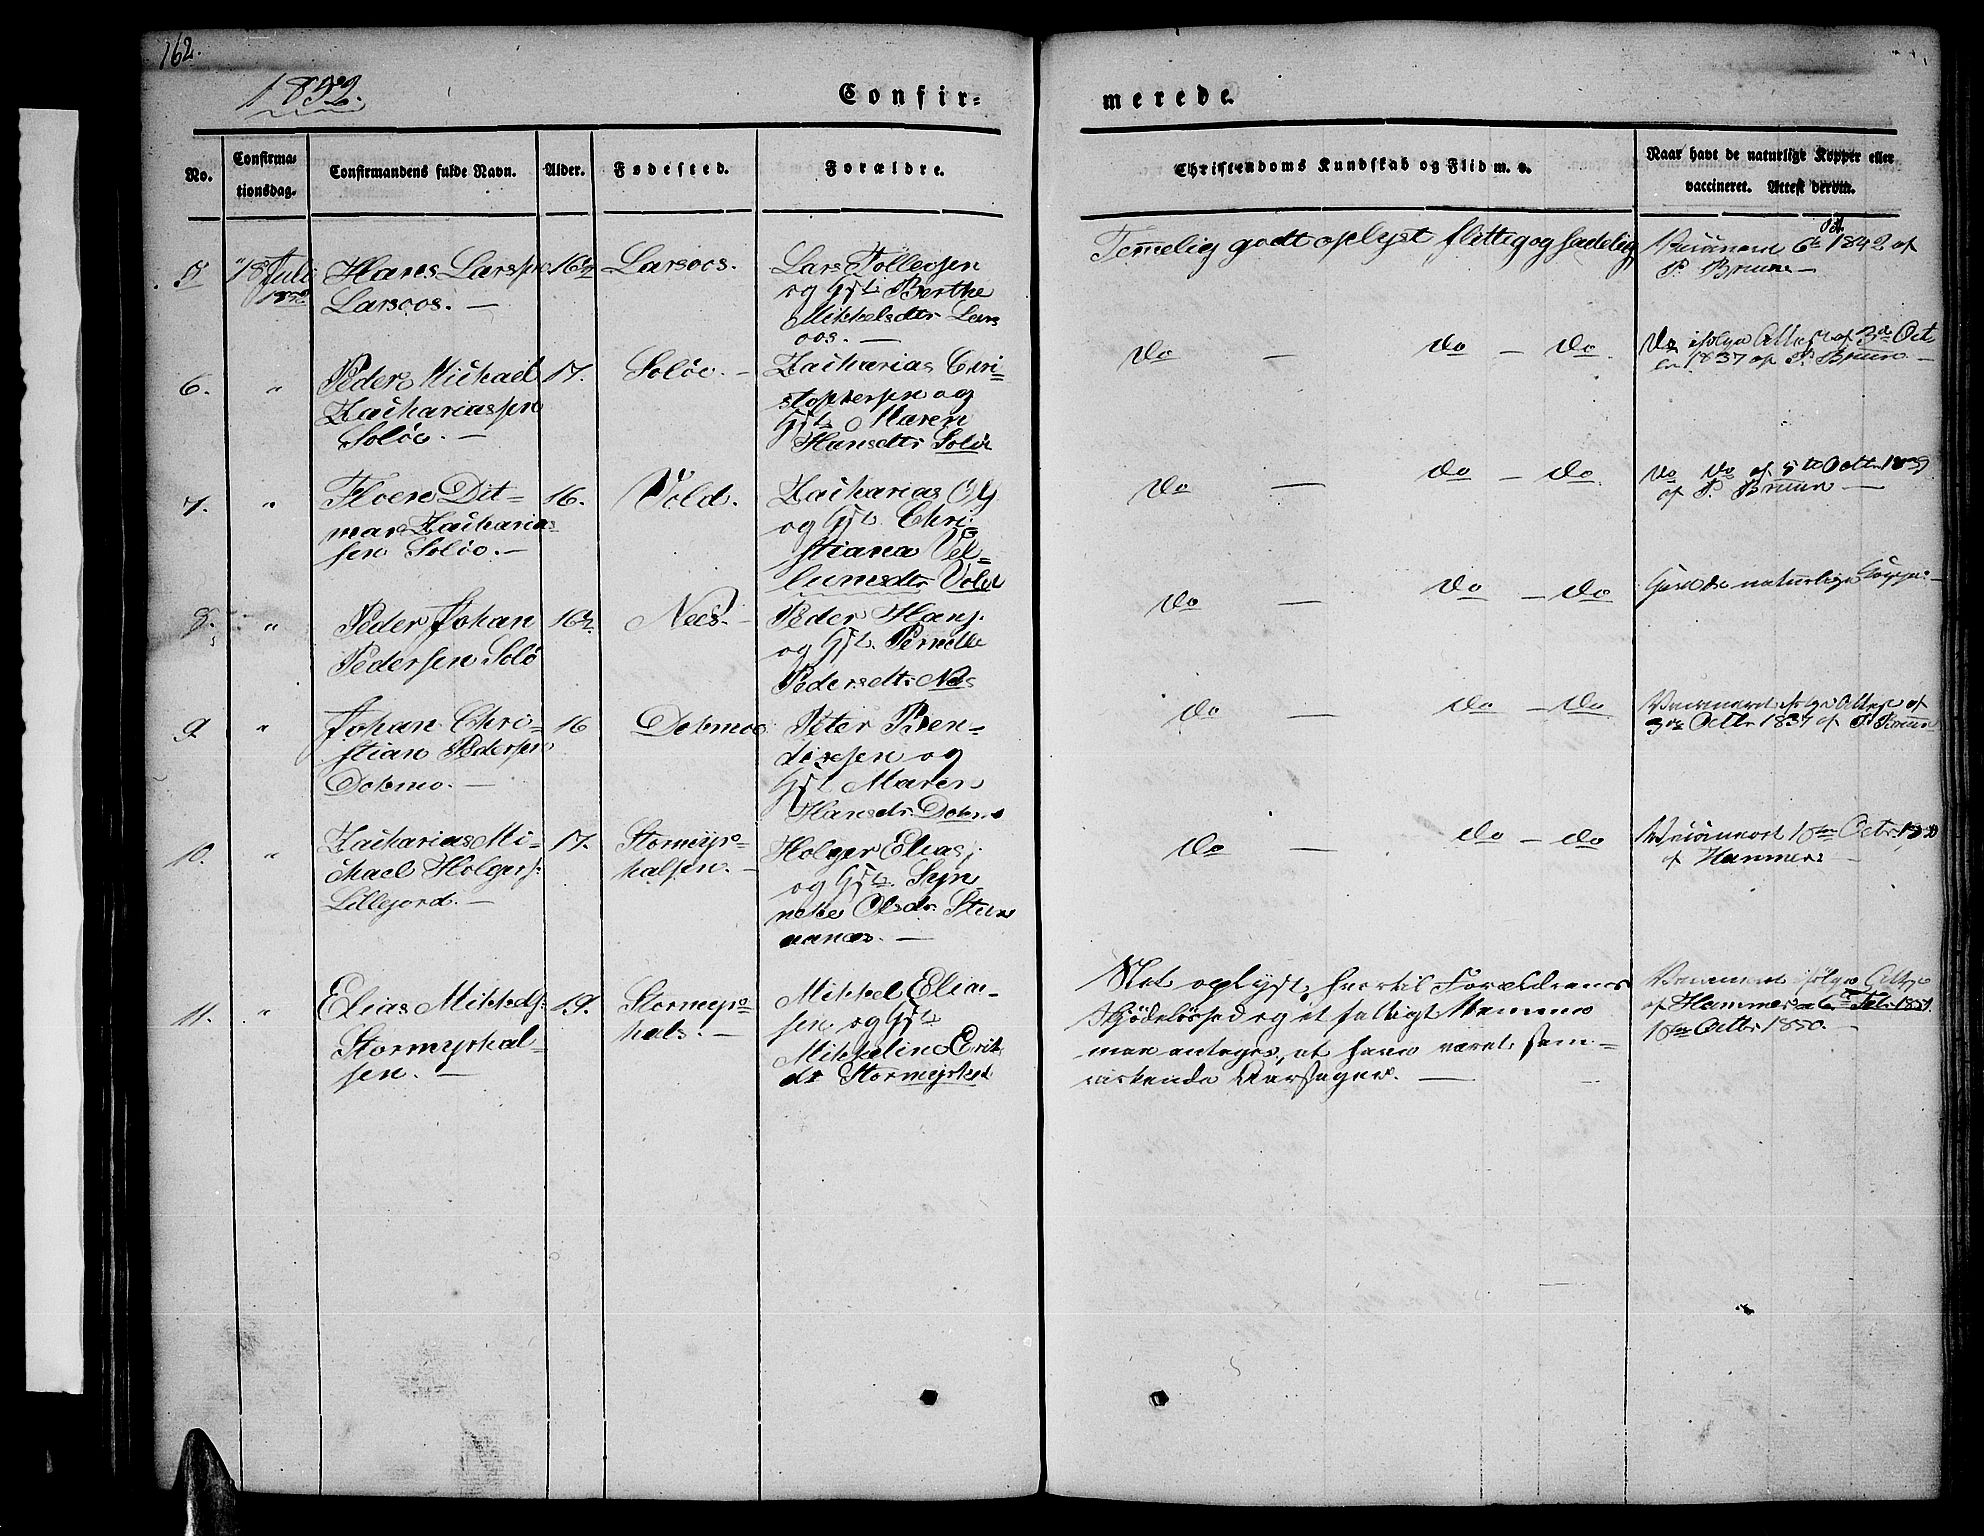 162.
1852.
Confir-
merede.
No.
Confirma-
tionsdag.
Confirmandens fulde Navn.
Alder.
Fødested.
Forældre.
Christendoms Kundskab og Flid m. v.
Naar havt de naturlige Kopper eller
vaccineret. Attest derom.
5
18 Juli
1852
Hans Larssen
Larsoos. —
16½
Larsoos.
Lars Tollefsen
og Hst. Berthe
Mikkelsdtr Lars
oos. —
Temmelig godt oplyst flittig og sædelig
Vaccineret 6te Oct. 1842 af
P. Bruun —
6.
"
Peder Michael
Zachariassen
Soløe. —
17.
Soløe. —
Zacharias Chri-
stophersen og
Hst. Maren
Hansdtr Soløe
do — do — do
do ifølge Attest af 3die Oct
1837 af P. Bruun —
7.
"
Ditmar Zacharias
sen Soløe. —
16.
Vold.
Zacharias Ol
og Hst. Chri-
stiana Vel-
lumsdtr Vold
do — do — do
do do af 5te Octbr
af P. Bruun —
8.
"
Peder Johan
Pedersen Solø
16½
Nees. —
Peder Hans.
og Hst. Pernille
Pedersdtr Nes
do — do — do
Havt de naturlige Kopper. —
9
"
Johan Chri-
stian Pedersen
Dokmo. —
16
Dokmoe
Peter Ben-
dixsen og
Hst. Maren
Hansdr. Dokmo
do — do — do
Vaccineret ifølge Attest af
3die Octbr 1837 af P. Bruun
10.
"
Zacharias Mi-
chael Holgers.
Lillejord. —
17.
Stormyr-
halsen. —
Holger Elias.
og Hst. Syn
neke Olsdr.
do — do — do
Vaccineret 10de Octbr 1850
af Hammer —
11.
"
Elias Mikkels.
Stormyrhal-
sen. —
19.
Stormyr-
hals. —
Mikkel Elia-
sen og Hst.
Mikkeline Erik
dr Stormyrhals
Slet oplyst, hvortil Forældrenes
Skjødesløshed og et fattigt Nemme
maa antages, at have været sam-
virkende Aarsager. —
Vaccineret ifølge Attest
af Hammer
10de Octbr 1850. —